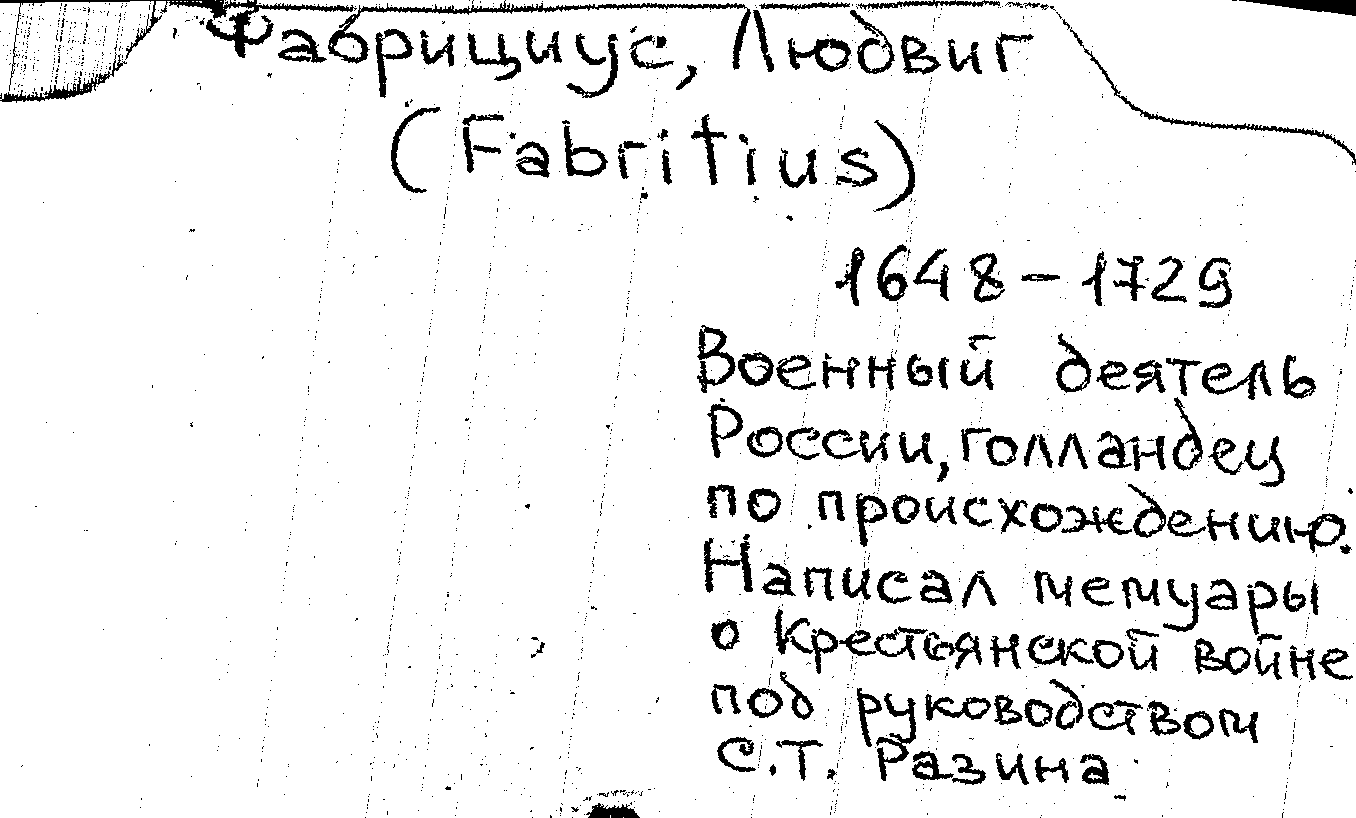 Фабрициус, Людвиг
(Fabritius)
1648 – 1729
Военный деятель
России, голландец
по происхождению.
Написал мемуары
о Крестьянской войне
под руководством
С.Т. Разина